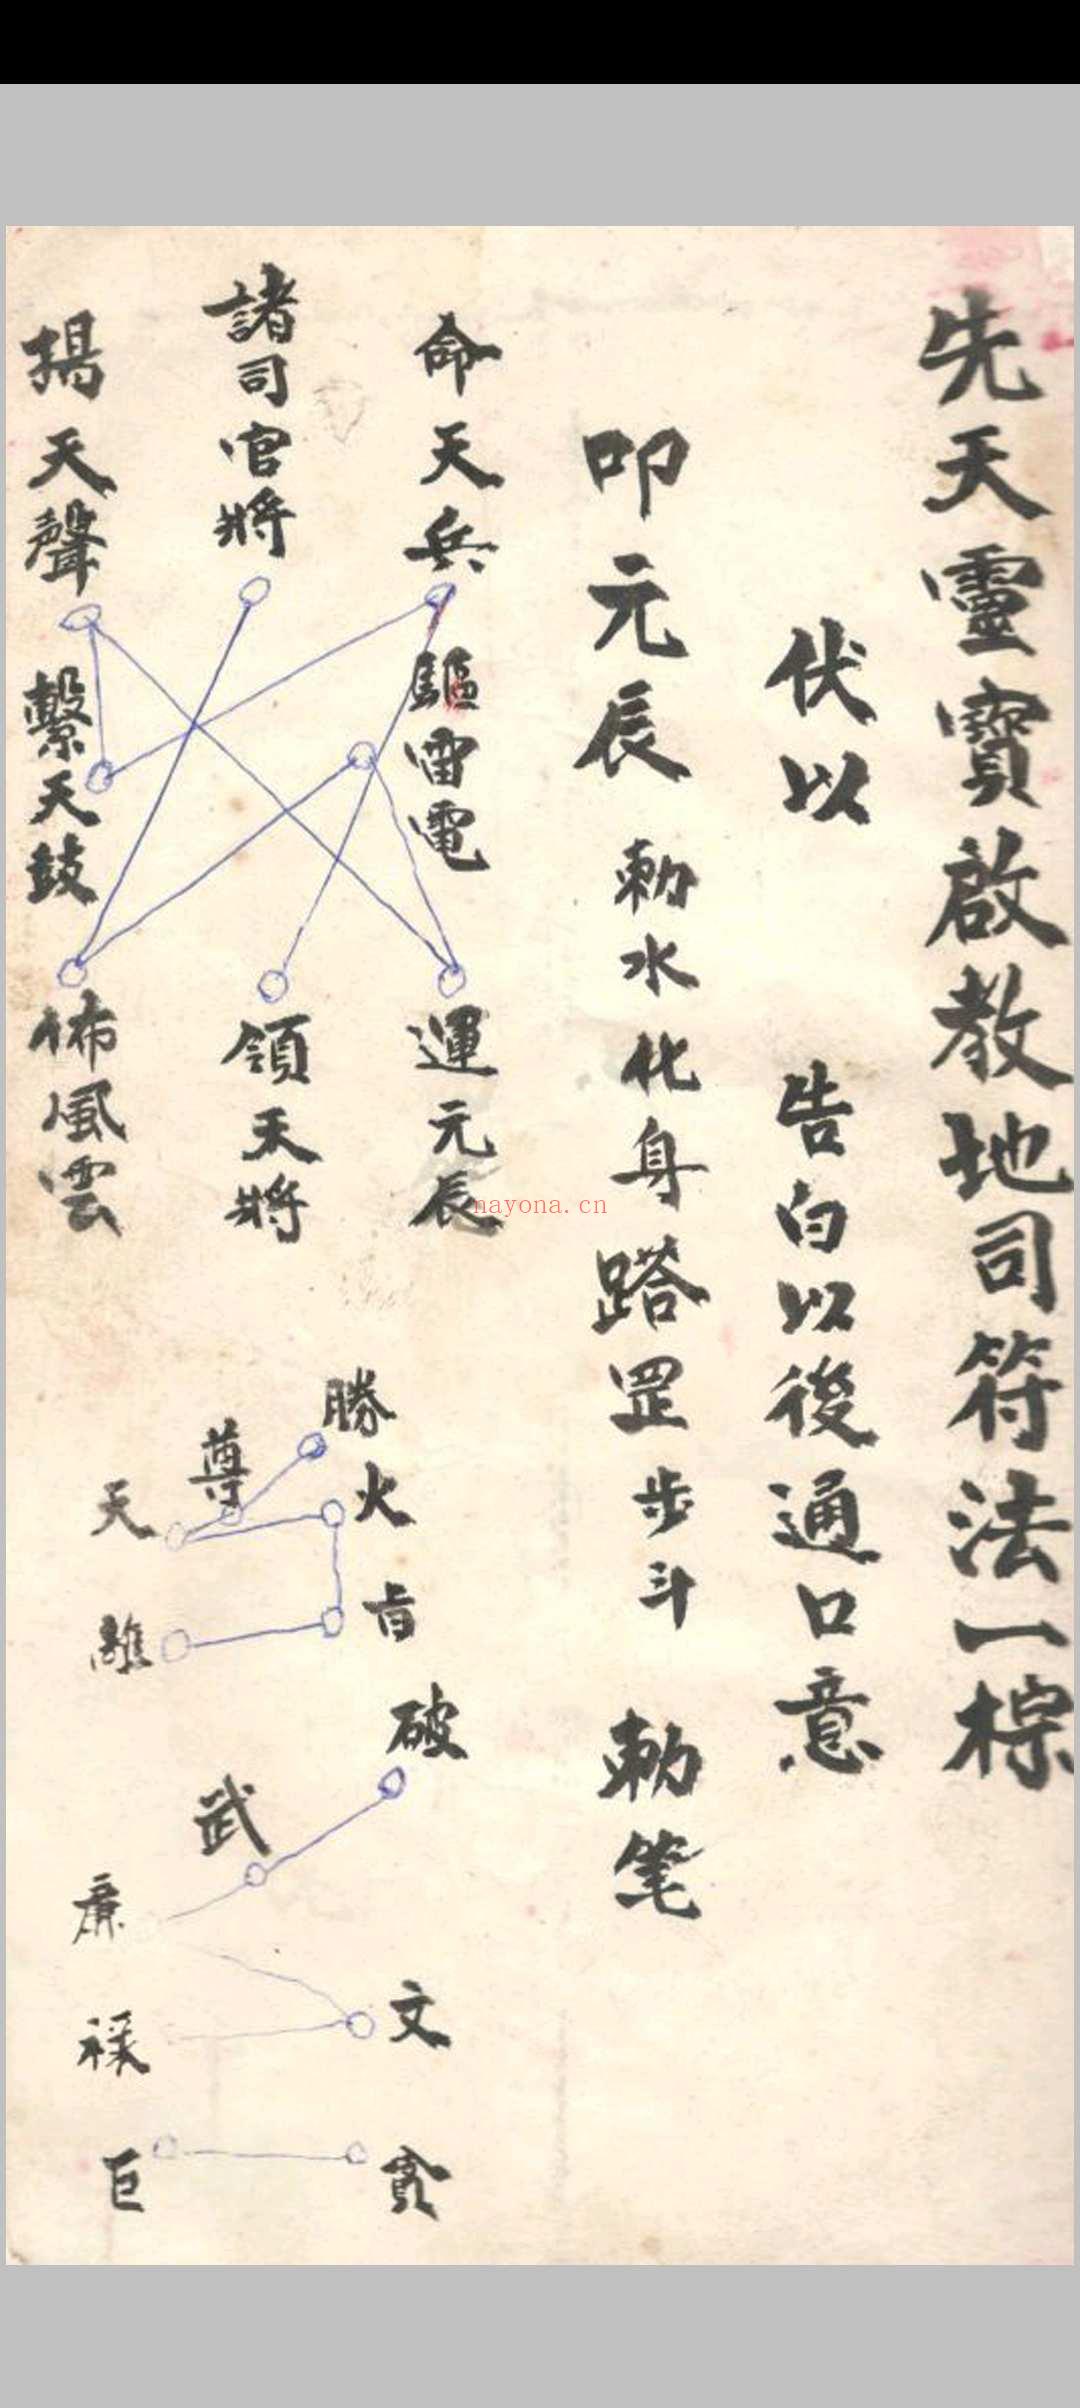 先天靈寶啟教地司符法一棕
伏以 告白以後通口意
叩元辰 勅水化身踏罡步斗 勅笔
命天兵 驅雷電 運元辰
諸司官將 領天將
揚天聲 繫天鼓 佈風雲
勝
火
尊
天
離
破
武
廉
文
禄
貪
巨
nayona.cn